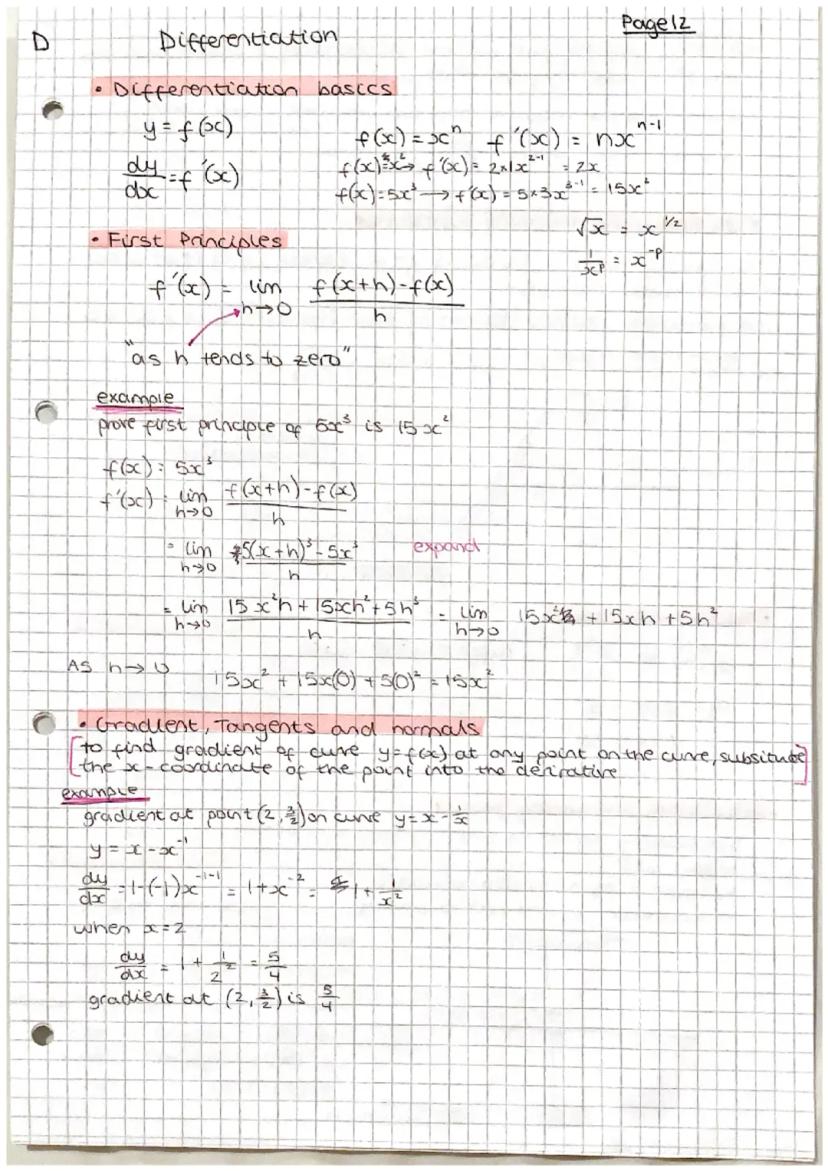 Page 12
D Differentiation
• Differentiation basics
y = f(x)
f(x) = xⁿ f'(x) = nxⁿ⁻¹
dy/dx = f'(x)
f(x) = x² → f'(x) = 2×1x²⁻¹ = 2x
f(x) = 5x³ → f'(x) = 5×3x³⁻¹ = 15x²
√x = x^1/2
1/x^p = x^-p
• First Principles
f'(x) = lim h→0 f(x+h)-f(x) / h
"as h tends to zero"
example
prove first principle of 5x³ is 15x²
f(x) = 5x³
f'(x) = lim h→0 f(x+h)-f(x) / h
= lim h→0 5(x+h)³-5x³ / h expand
= lim h→0 15x²h + 15xh² + 5h³ / h = lim h→0 15x² + 15xh + 5h²
As h→0 15x² + 15x(0) + 5(0)² = 15x²
• Gradient, Tangents and normals
[to find gradient of curve y=f(x) at any point on the curve, subsitute
the x-coordinate of the point into the derivative]
example
gradient at point (2, 3/2) on curve y = x - 1/x
y = x - x⁻¹
dy/dx = 1-(-1)x⁻¹⁻¹ = 1+x⁻² = 1 + 1/x²
when x = 2
dy/dx = 1 + 1/2² = 5/4
gradient at (2, 3/2) is 5/4